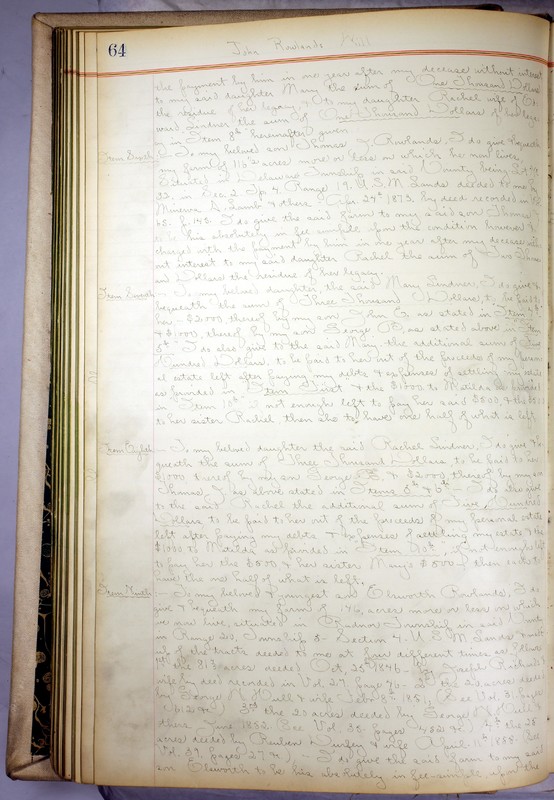 64 John Rowlands Will
the payment by him in one year after my decease without interest
to my said daughter Mary the sum of One Thousand Dollars
the residue of her legacy & to my daughter Rachel wife of
ward Lindner the sum of One Thousand Dollars of her lega
in Item 8th hereinafter given
Item Sixth:- To my beloved son Thomas J. Rowlands, I do give & bequeath
my farm of 116 acres more or less on which he now lives,
situated in Delaware Township in said County being Lot No
32. in Sec. 2. Tp. 4. Range 19. U.S.M. Lands deeded to me by
Minerva A. Lamb & others Apr. 29th 1873. by deed recorded in Vol
68. p. 148. I do give the said farm to my said son Thomas J.
to be his absolutely in fee simple, upon the condition however &
charged with the payment by him in one year after my decease with
out interest to my said daughter Rachel the sum of Two Thous
and Dollars the residue of her legacy.
Item Seventh:- To my beloved daughter the said Mary Lindner, I do give &
bequeath the sum of Three Thousand Dollars, to be paid to
her - $2,000 thereof by my son John C. as stated in Item 4th
& $1000, thereof by my son George B, as stated above in Item
5th I do also give to the said Mary the additional sum of Five
Hundred Dollars, to be paid to her out of the proceeds of my person
al estate left after paying my debts & expenses of settling my estate
as provided in Item First & the $1000 to Matilda as provided
in Item 10th if not enough left to pay her said $500, & the $500
to her sister Rachel then she to have one half of what is left.
Item Eighth:- To my beloved daughter the said Rachel Lindner, I do give & be
queath the sum of Three Thousand Dollars, to be paid to her
$1000 thereof by my son George B, & $2,000, thereof by my son
Thomas J, as above stated in Items 5th & 6th - I do also give
to the said Rachel the additional sum of Five Hundred
Dollars to be paid to her out of the proceeds of my personal estate
left after paying my debts & expenses of settling my estate & the
$1000 to Matilda as provided in Item 10th, if not enough left
to pay her the $500 & her sister Mary's $500 - then each to
have the one half of what is left.
Item Ninth:- To my beloved & youngest son Elsworth Rowlands, I do
give & bequeath my farm of 176, acres more or less on which
we now live, situated in Radnor Township in said County
in Range 20, Township 5- Section 4. U.S.M Lands &
of the tracts deeded to me at four different times as follows
1st the 81 3/4 acres deeded Oct, 25th 1846 - by Joseph &
wife by deed recorded in Vol. 27. page 76 - 2nd the acres deeded
by George N. Hill & wife Feb. 18th 1851, (See Vol. 31. pages
3rd the 20 acres deeded by George N. Hill &
others June 1852. (See Vol. 33. pages 451 &c) 4th the 25
acres deeded by Reuben & wife April. 11th 1855. (See
Vol. 39. pages 27 &) - I do give the said farm to my said
son Elsworth to be his absolutely in fee-simple upon the